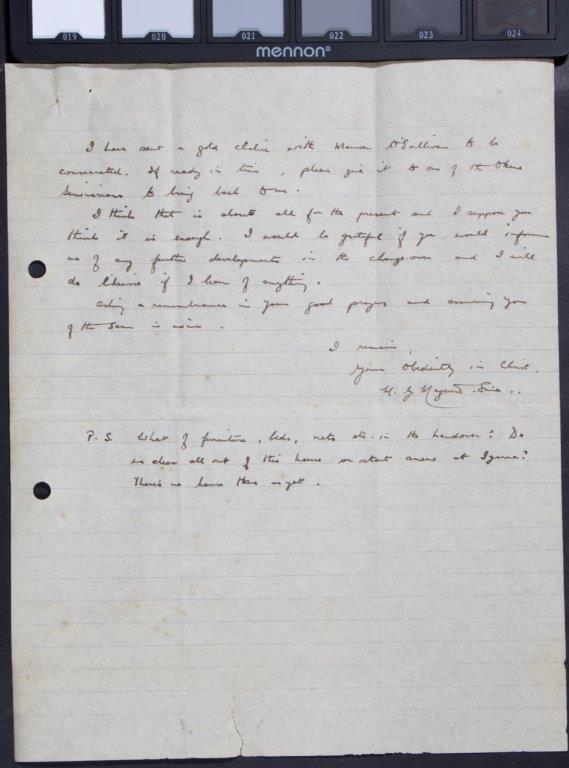 019 020 021 022 023 024
mennon®
I have sent a gold chalice with O'Sullivan to be
consecrated. If ready in time, please give it to one of the
Seminarians to bring back to me.
I think that is about all for the present and I suppose you
think it is enough. I would be grateful if you would inform
me of any further developments in the changeover and I will
do likewise if I hear of anything.
Asking a remembrance in your good prayers and assuring you
of the same in mine.
I remain,
Yours Obediently in Christ,
P.S. What of furniture, beds, nets etc. in the handover? Do
we clear all out of this house or start anew at
There's no house there as yet.